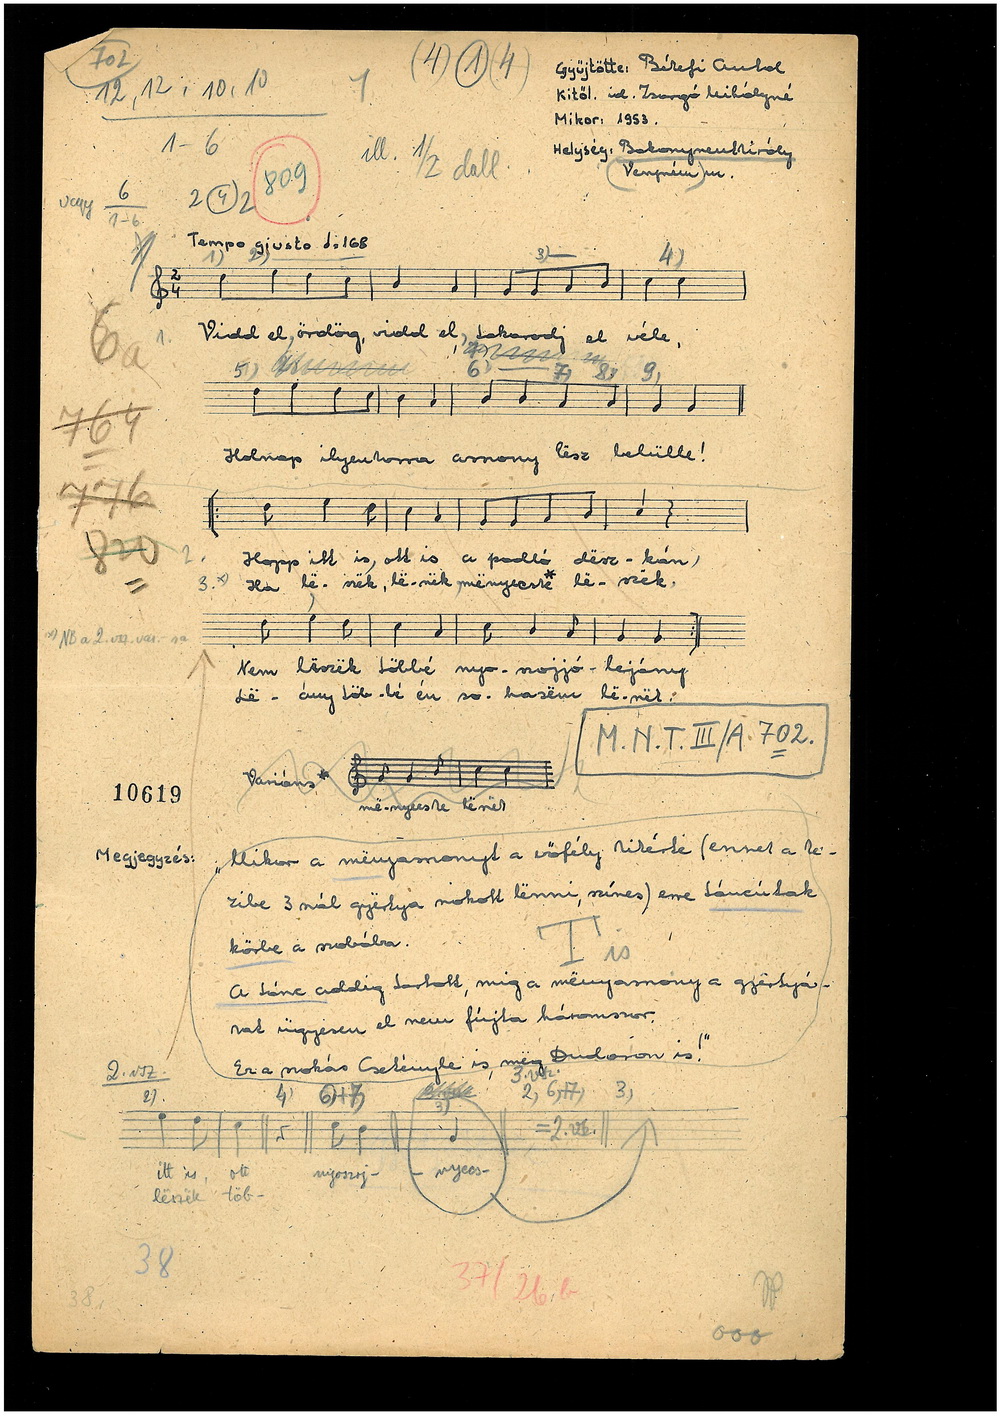 702
(4) 1 (4)
12, 12, 10, 10
7
Gyűjtötte: Bérefi Antal
Kitől. id. Zsargó Mihályné
Mikor: 1953.
Helység: Bakonyszentkirály
(Veszprém) m.
1-6
ill. 1/2 dall.
809
vagy 6
1-6
2 4 2
Tempo giusto ♩=168
1) 2) 3) 4)
2
4
6a
1. Vidd el, ördög, vidd el, takarodj el véle,
5) 6) 7) 8) 9)
764
Holnap ilyenkorra asszony lësz belülle!
776
820
2. Hopp itt is, ott is a padló dësz-kán,
3. x) Ha lë-szëk, lë-szëk, mënyecske* lë-szëk,
x) NB a 2. vsz. var.-sa
Nem lëszëk többé nyo-szojjó-lejány
Lë-ány töb-bé én so-hasëm lë-szëk.
M.N.T. III/A 702.
Variáns*
më-nyecske lëszëk
10619
Megjegyzés: „Mikor a mënyasszonyt a vőfély kikérte (ennek a ke-
zibe 3 szál gyërtya szokott lënni, színes) erre táncútak
körbe a szobába.
T is
A tánc addig tartott, míg a mënyasszony a gyërtyá-
kat ügyesen el nem fújta háromszor.
Ez a szokás Csetënybe is, mëg Dudaron is!"
2. vsz.
3. vsz.
2) 4) 6)+7) 3) 2, 6)+7) 3)
=2. vsz.
itt is, ott nyoszoj- - nyecs-
lëszëk töb-
38
37/26.b
38.
000